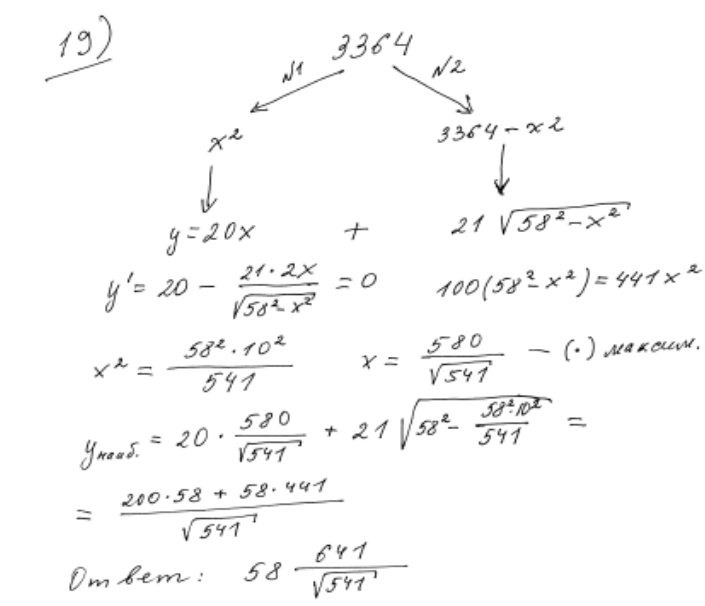 19) 3364
N1 N2
x² 3364 - x2
y = 20x + 21 √(58² - x²)
y' = 20 - (21·2x)/√(58² - x²) = 0 100(58² - x²) = 441x²
x² = (58²·10²)/541 x = 580/√541 - (·) максим.
yнаиб. = 20 · 580/√541 + 21 √(58² - (58²·10²)/541) =
= (200·58 + 58·441)/√541
Ответ: 58 641/√541